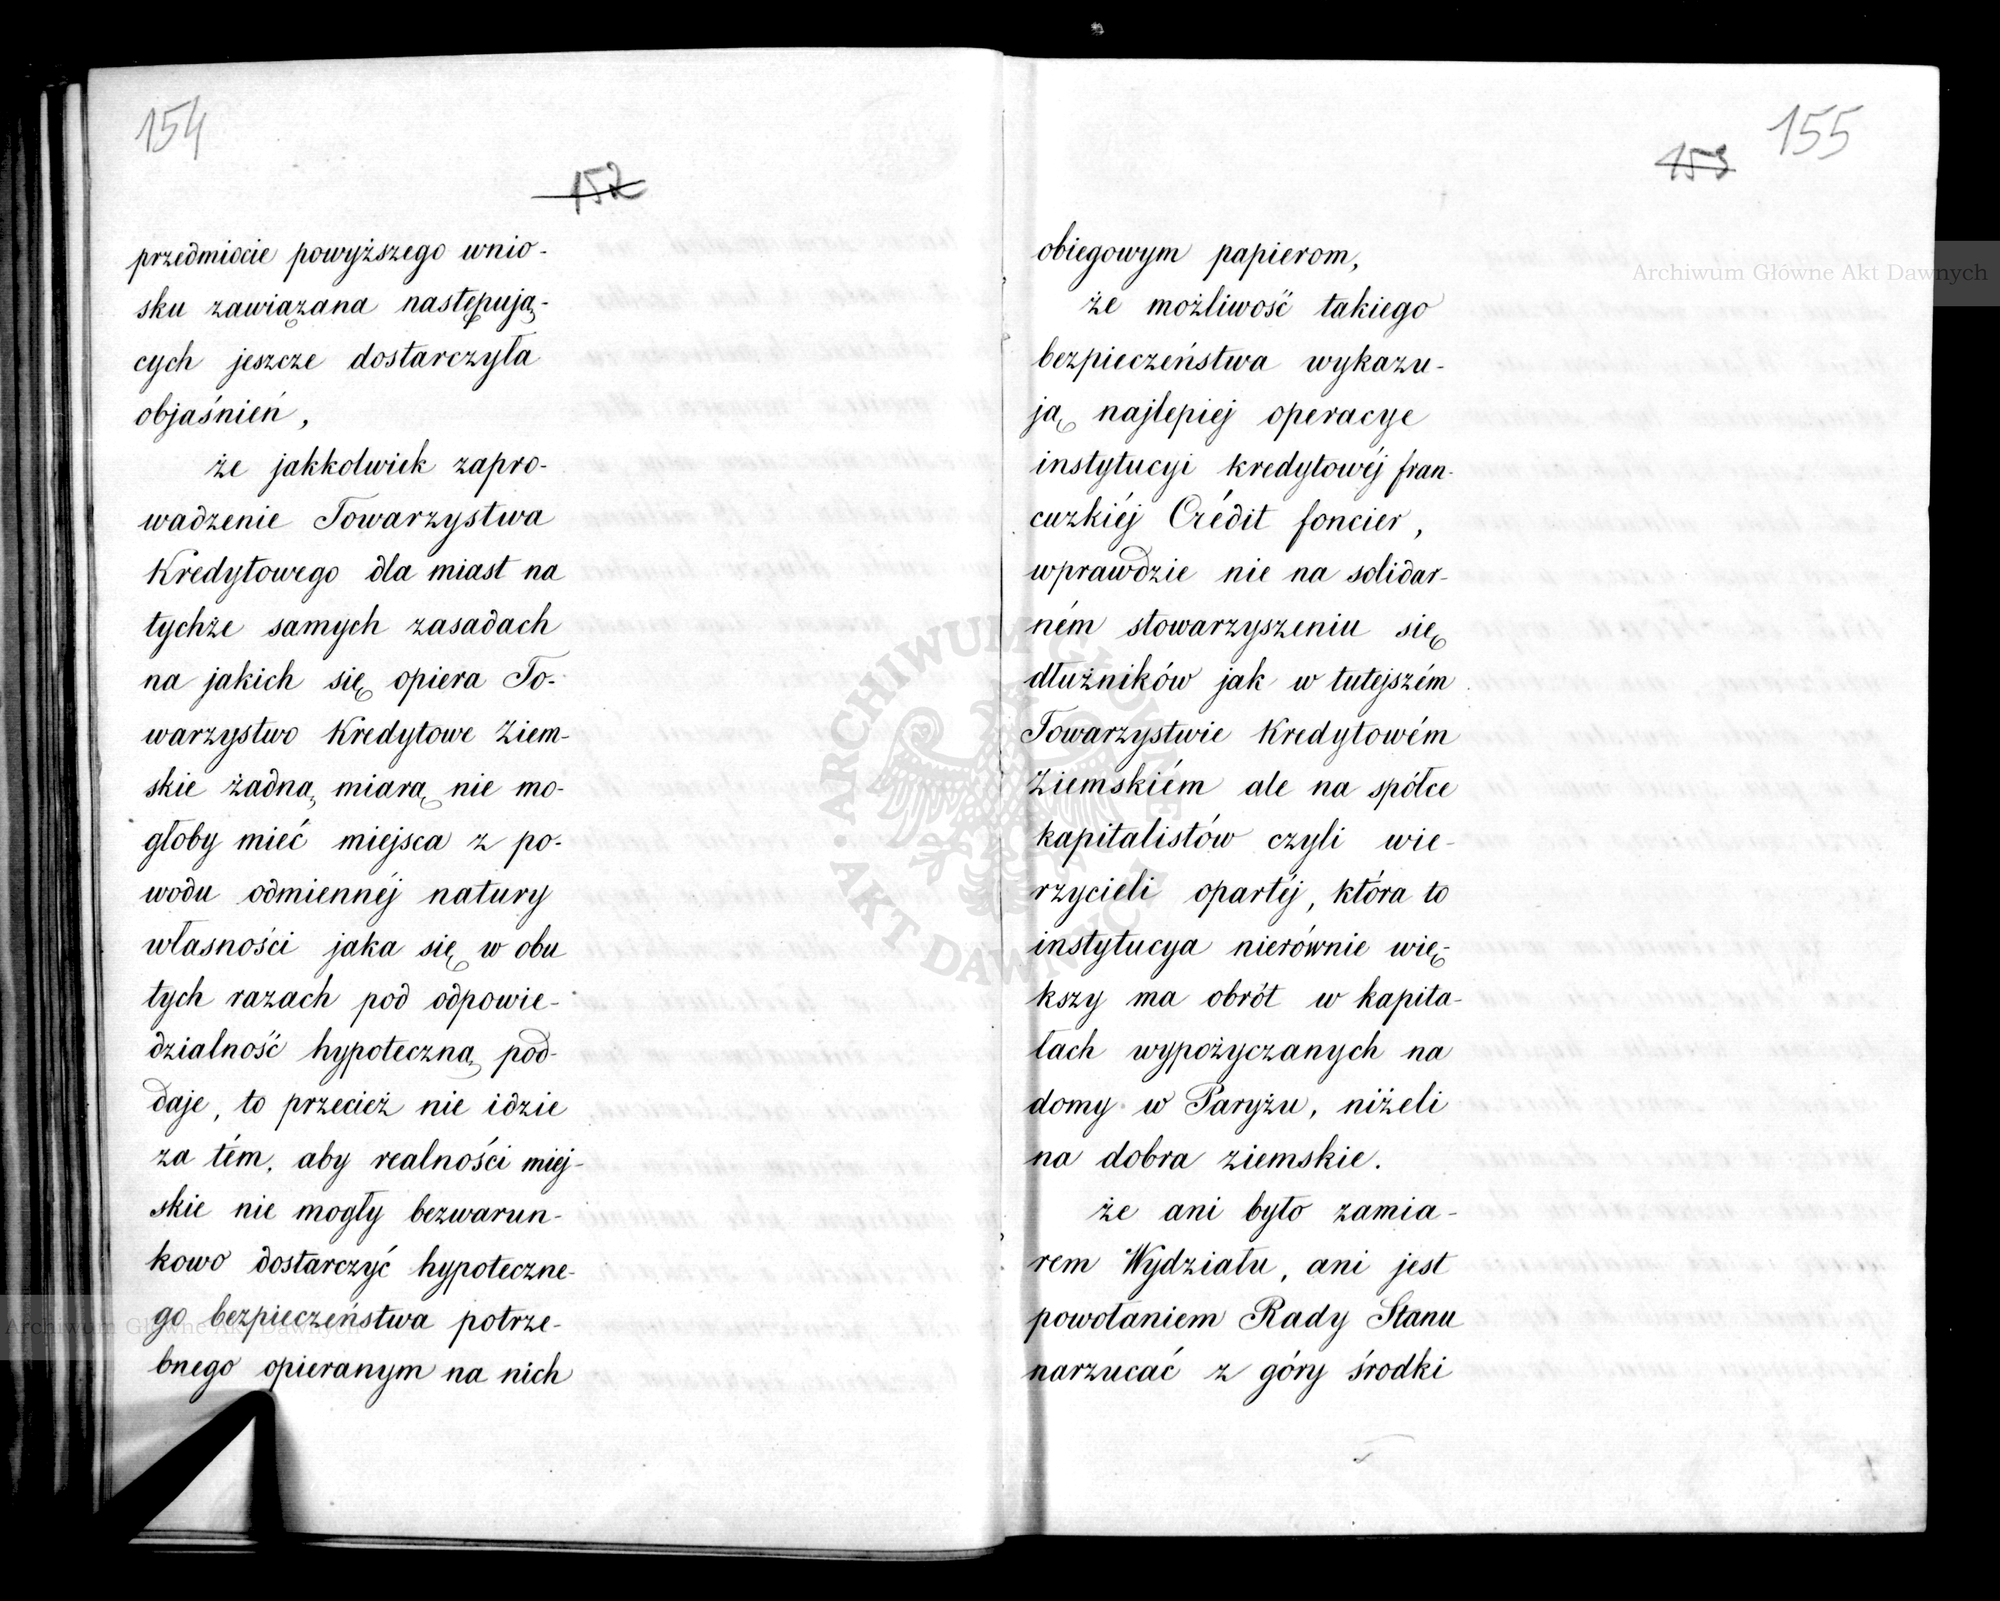 154
152
przedmiocie powyższego wnio-
sku zawiązana następują-
cych jeszcze dostarczyła
objaśnień,
że jakkolwiek zapro-
wadzenie Towarzystwa
Kredytowego dla miast na
tychże samych zasadach
na jakich się opiera To-
warzystwo Kredytowe Ziem-
skie żadną miarą nie mo-
głoby mieć miejsca z po-
wodu odmiennéj natury
własności jaka się w obu
tych razach pod odpowie-
dzialność hypoteczną pod-
daje, to przecież nie idzie
za tém, aby realności miej-
skie nie mogły bezwarun-
kowo dostarczyć hypoteczne-
go bezpieczeństwa potrze-
bnego opieranym na nich
155
153
obiegowym papierom,
że możliwość takiego
bezpieczeństwa wykazu-
ją najlepiej operacye
instytucyi kredytowéj fran-
cuzkiéj Crédit foncier,
wprawdzie nie na solidar-
ném stowarzyszeniu się
dłużników jak w tutejszém
Towarzystwie Kredytowém
Ziemskiém ale na spółce
kapitalistów czyli wie-
rzycieli opartéj, która to
instytucya nierównie wię-
kszy ma obrót w kapita-
łach wypożyczanych na
domy w Paryżu, niżeli
na dobra ziemskie.
że ani było zamia-
rem Wydziału, ani jest
powołaniem Rady Stanu
narzucać z góry środki
Archiwum Główne Akt Dawnych
Archiwum Główne Akt Dawnych
ARCHIWUM GŁÓWNE
AKT DAWNYCH